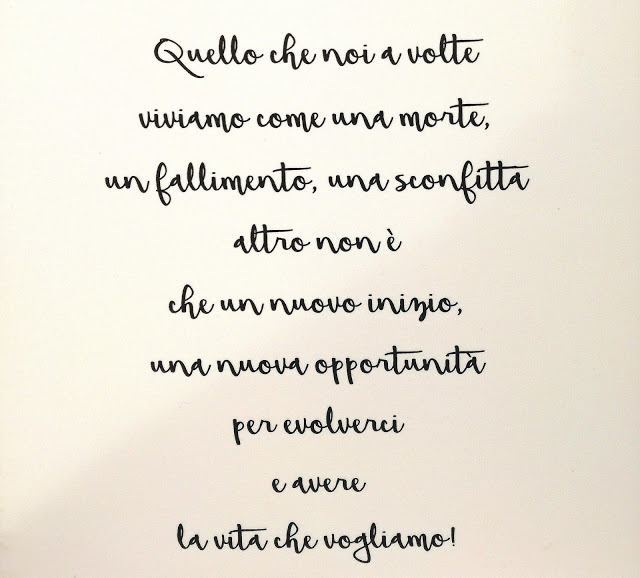 Quello che noi a volte
viviamo come una morte,
un fallimento, una sconfitta
altro non è
che un nuovo inizio,
una nuova opportunità
per evolverci
e avere
la vita che vogliamo!